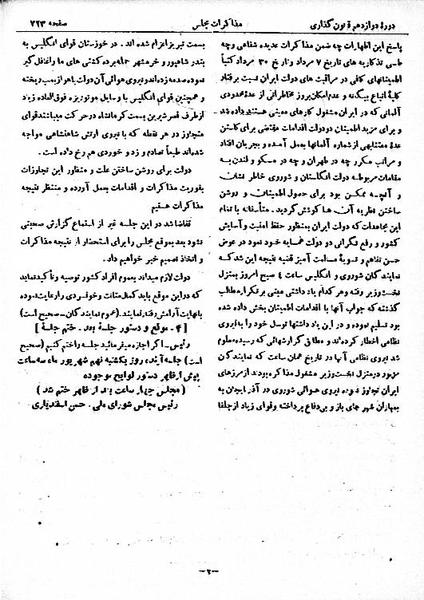 دورهٔ دوازدهم قانون گذاری
مذاکرات مجلس
صفحه ۲۲۳
پاسخ این اظهارات چه ضمن مذاکرات عدیده شفاهی و چه
طی تذکاریه های تاریخ ۷ مرداد و تاریخ ۳۰ مرداد کتباً
اطمینانهای کافی در مراقبت های دولت ایران نسبت برفتار
کلیهٔ اتباع بیگانه و عدم امکان بروز مخاطراتی از عدهٔ معدودی
آلمانی که در ایران مشغول کارهای معینی هستند داده شد
و برای مزید اطمینان دو دولت اقدامات مقتضی برای کاستن
عدهٔ معتنابهی از شماره آلمانها بعمل آمده و بجریان افتاد
و مراتب مکرر چه در طهران و چه در مسکو و لندن به
مقامات مربوطه دولت انگلستان و شوروی خاطر نشان
و آنچه ممکن بود برای حصول اطمینان و روشن
ساختن نظریه آن ها کوشش گردید. متأسفانه با تمام
این مجاهدات که دولت ایران بمنظور حفظ امنیت و آسایش
کشور و رفع نگرانی دو دولت همسایه خود نمود در عوض
حسن تفاهم و تسویهٔ مسالمت آمیز قضیه نتیجه این شد که
نمایندگان شوروی و انگلیس ساعت ۴ صبح امروز بمنزل
نخست وزیر رفته و هر کدام یادداشتی مبنی بر تکرار مطالب
گذشته که جواب آنها با اقدامات اطمینان بخش داده شده
بود تسلیم نموده و در این یادداشتها توسل خود را به نیروی
نظامی اخطار کرده اند و مطابق گزارشهائی که رسیده معلوم
شد نیروی نظامی آنها در تاریخ همان ساعت که نمایندگان
مزبور در منزل نخست وزیر مشغول مذاکره بودند از مرزهای
ایران تجاوز نموده نیروی هوائی شوروی در آذربایجان به
بمباران شهر های باز و بی دفاع پرداخته و قوای زیاد از جلفا
بسمت تبریز اعزام شده اند. در خوزستان قوای انگلیس به
بندر شاهپور و خرمشهر حمله برده کشتی های ما را غافل گیر
نموده صدمه زده اند و نیروی هوائی آن دولت باهواز بمب ریخته
و همچنین قوای انگلیس با وسایل موتوریزه فوق العاده زیاد
از طرف قصرشیرین بسمت کرمانشاه در حرکت میباشند قوای
متجاوز در هر نقطه که با نیروی ارتش شاهنشاهی مواجه
شده اند طبعاً تصادم و زد و خوردی هم رخ داده است.
دولت برای روشن ساختن علت و منظور این تجاوزات
بفوریت مذاکرات و اقدامات بعمل آورده و منتظر نتیجه
مذاکرات هستیم
تقاضا شد در این جلسه غیر از استماع گزارش صحبتی
نشود بعد بموقع مجلس را برای استحضار از نتیجه مذاکرات و
و اتخاذ تصمیم خبر خواهیم داد.
دولت لازم میداند بعموم افراد کشور توصیه و تأکید نماید
که در این موقع باید کمال متانت و خونسردی را رعایت نموده
با نهایت آرامش رفتار نمایند. (عموم نمایندگان - صحیح است)
[۴ - موقع و دستور جلسه بعد - ختم جلسه]
رئیس - اگر اجازه میفرمائید جلسه را ختم کنیم (صحیح
است) جلسه آینده روز یکشنبه نهم شهریور ماه سه ساعت
پیش از ظهر دستور لوایح موجوده
(مجلس چهار ساعت بعد از ظهر ختم شد)
رئیس مجلس شورای ملی - حسن اسفندیاری
-۲-